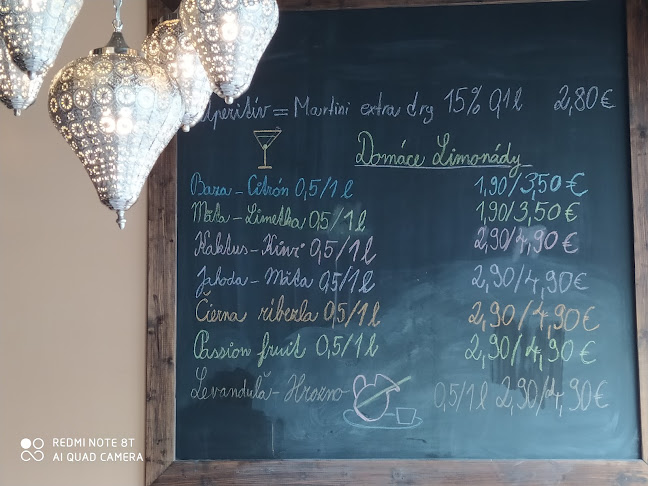 Aperitív = Martini extra dry 15% 0,1l 2,80€
Domáce Limonády
Baza - Citrón 0,5/1l 1,90/3,50€
Mäta - Limetka 0,5/1l 1,90/3,50€
Kaktus - Kiwi 0,5/1l 2,90/4,90€
Jahoda - Mäta 0,5/1l 2,90/4,90€
Čierna ríbezla 0,5/1l 2,90/4,90€
Passion fruit 0,5/1l 2,90/4,90€
Levanduľa - Hrozno 0,5/1l 2,90/4,90€
REDMI NOTE 8T
AI QUAD CAMERA